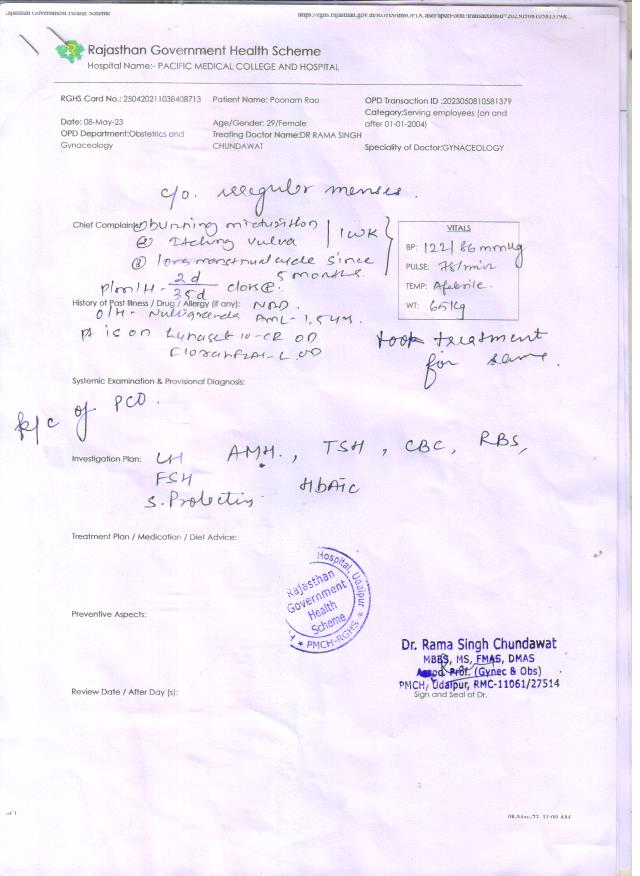 Rajasthan Government Health Scheme
Rajasthan Government Health Scheme
Hospital Name:- PACIFIC MEDICAL COLLEGE AND HOSPITAL
RGHS Card No.: 250420211038408713 Patient Name: Poonam Rao OPD Transaction ID :2023050810581379
Category:Serving employees (on and
Date: 08-May-23 Age/Gender: 29/Female after 01-01-2004)
OPD Department:Obstetrics and Treating Doctor Name:DR RAMA SINGH
Gynaceology CHUNDAWAT Speciality of Doctor:GYNACEOLOGY
c/o. irregular menses.
Chief Complain: ① burning micturition
② Itching vulva 1 WK
③ long menstrual cycle since
5 months.
VITALS
BP: 122/86 mmHg
PULSE: 78/min
TEMP: Afebrile.
WT: 65Kg
P/M/H- 2d
35d
History of Past Illness / Drug / Allergy (if any): NAD
O/H- AML- 1.5
Pt is on OD
OD
took treatment
for same.
Systemic Examination & Provisional Diagnosis:
k/c of PCO.
Investigation Plan: LH AMH., TSH, CBC, RBS,
FSH HbA1c
S. Prolactin
Treatment Plan / Medication / Diet Advice:
Hospital, Udaipur
Rajasthan
Government
Health
Scheme
PMCH-RGHS
Preventive Aspects:
Dr. Rama Singh Chundawat
MBBS, MS, FMAS, DMAS
Assod. Prof. (Gynec & Obs)
PMCH, Udaipur, RMC-11061/27514
Review Date / After Day (s): Sign and Seal of Dr.